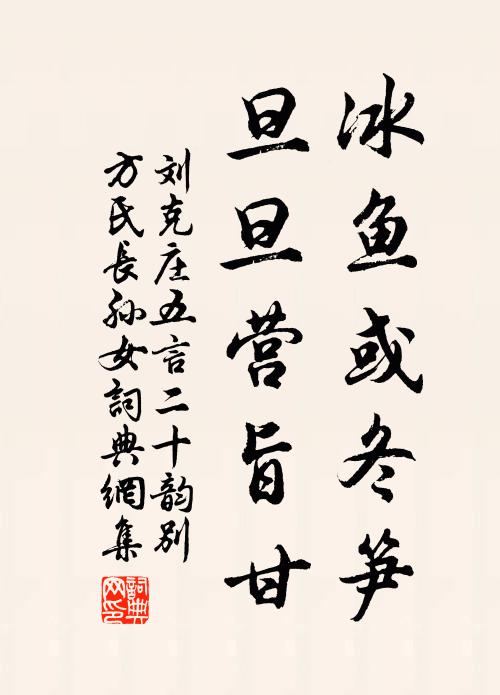 冰鱼或冬笋
旦旦营旨甘
刘克庄五言二十韵别
方氏長孙女詞典網集
詞典网印